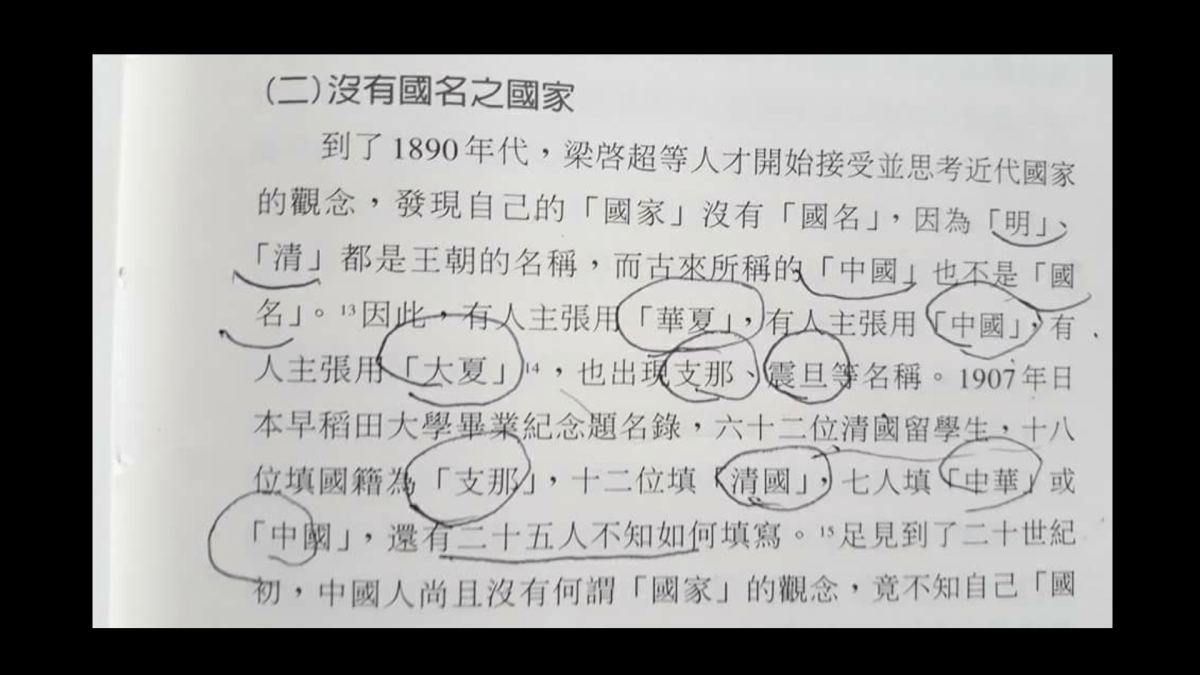 (二)沒有國名之國家
到了1890年代，梁啓超等人才開始接受並思考近代國家
的觀念，發現自己的「國家」沒有「國名」，因為「明」、
「清」都是王朝的名稱，而古來所稱的「中國」也不是「國
名」。13因此，有人主張用「華夏」，有人主張用「中國」，有
人主張用「大夏」14，也出現支那、震旦等名稱。1907年日
本早稻田大學畢業紀念題名錄，六十二位清國留學生，十八
位填國籍為「支那」，十二位填「清國」，七人填「中華」或
「中國」，還有二十五人不知如何填寫。15足見到了二十世紀
初，中國人尚且沒有何謂「國家」的觀念，竟不知自己「國